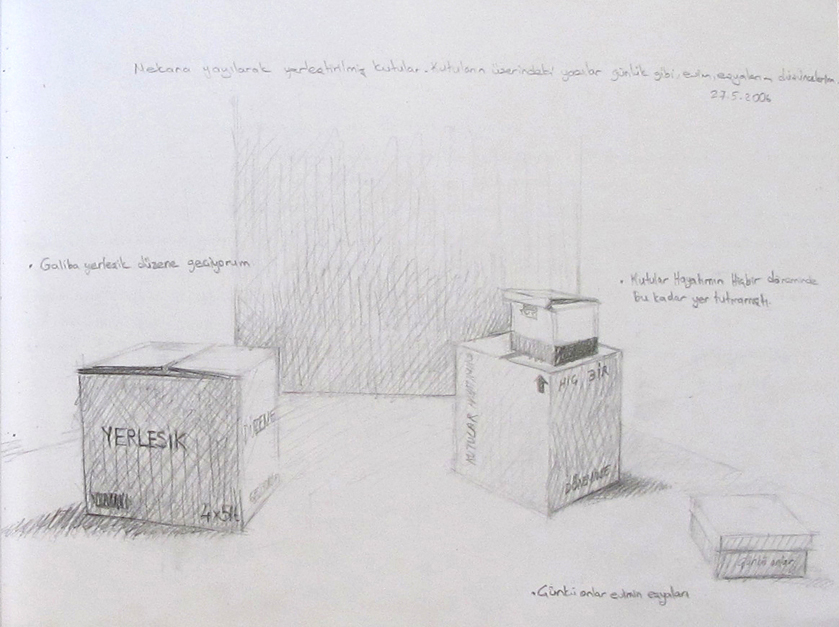 Mekana yayılarak yerleştirilmiş kutular. Kutuların üzerindeki yazılar günlük gibi, evim, eşyalarım, düşüncelerim
27.5.2006
• Galiba yerleşik düzene geçiyorum
• Kutular Hayatımın Hiçbir döneminde
bu kadar yer tutmamıştı.
HİÇ BİR
KUTULAR HAYATIMIN
YERLEŞIK
DÖNEMİNDE
4x5lt
Çünkü onlar
• Çünkü onlar evimin eşyaları